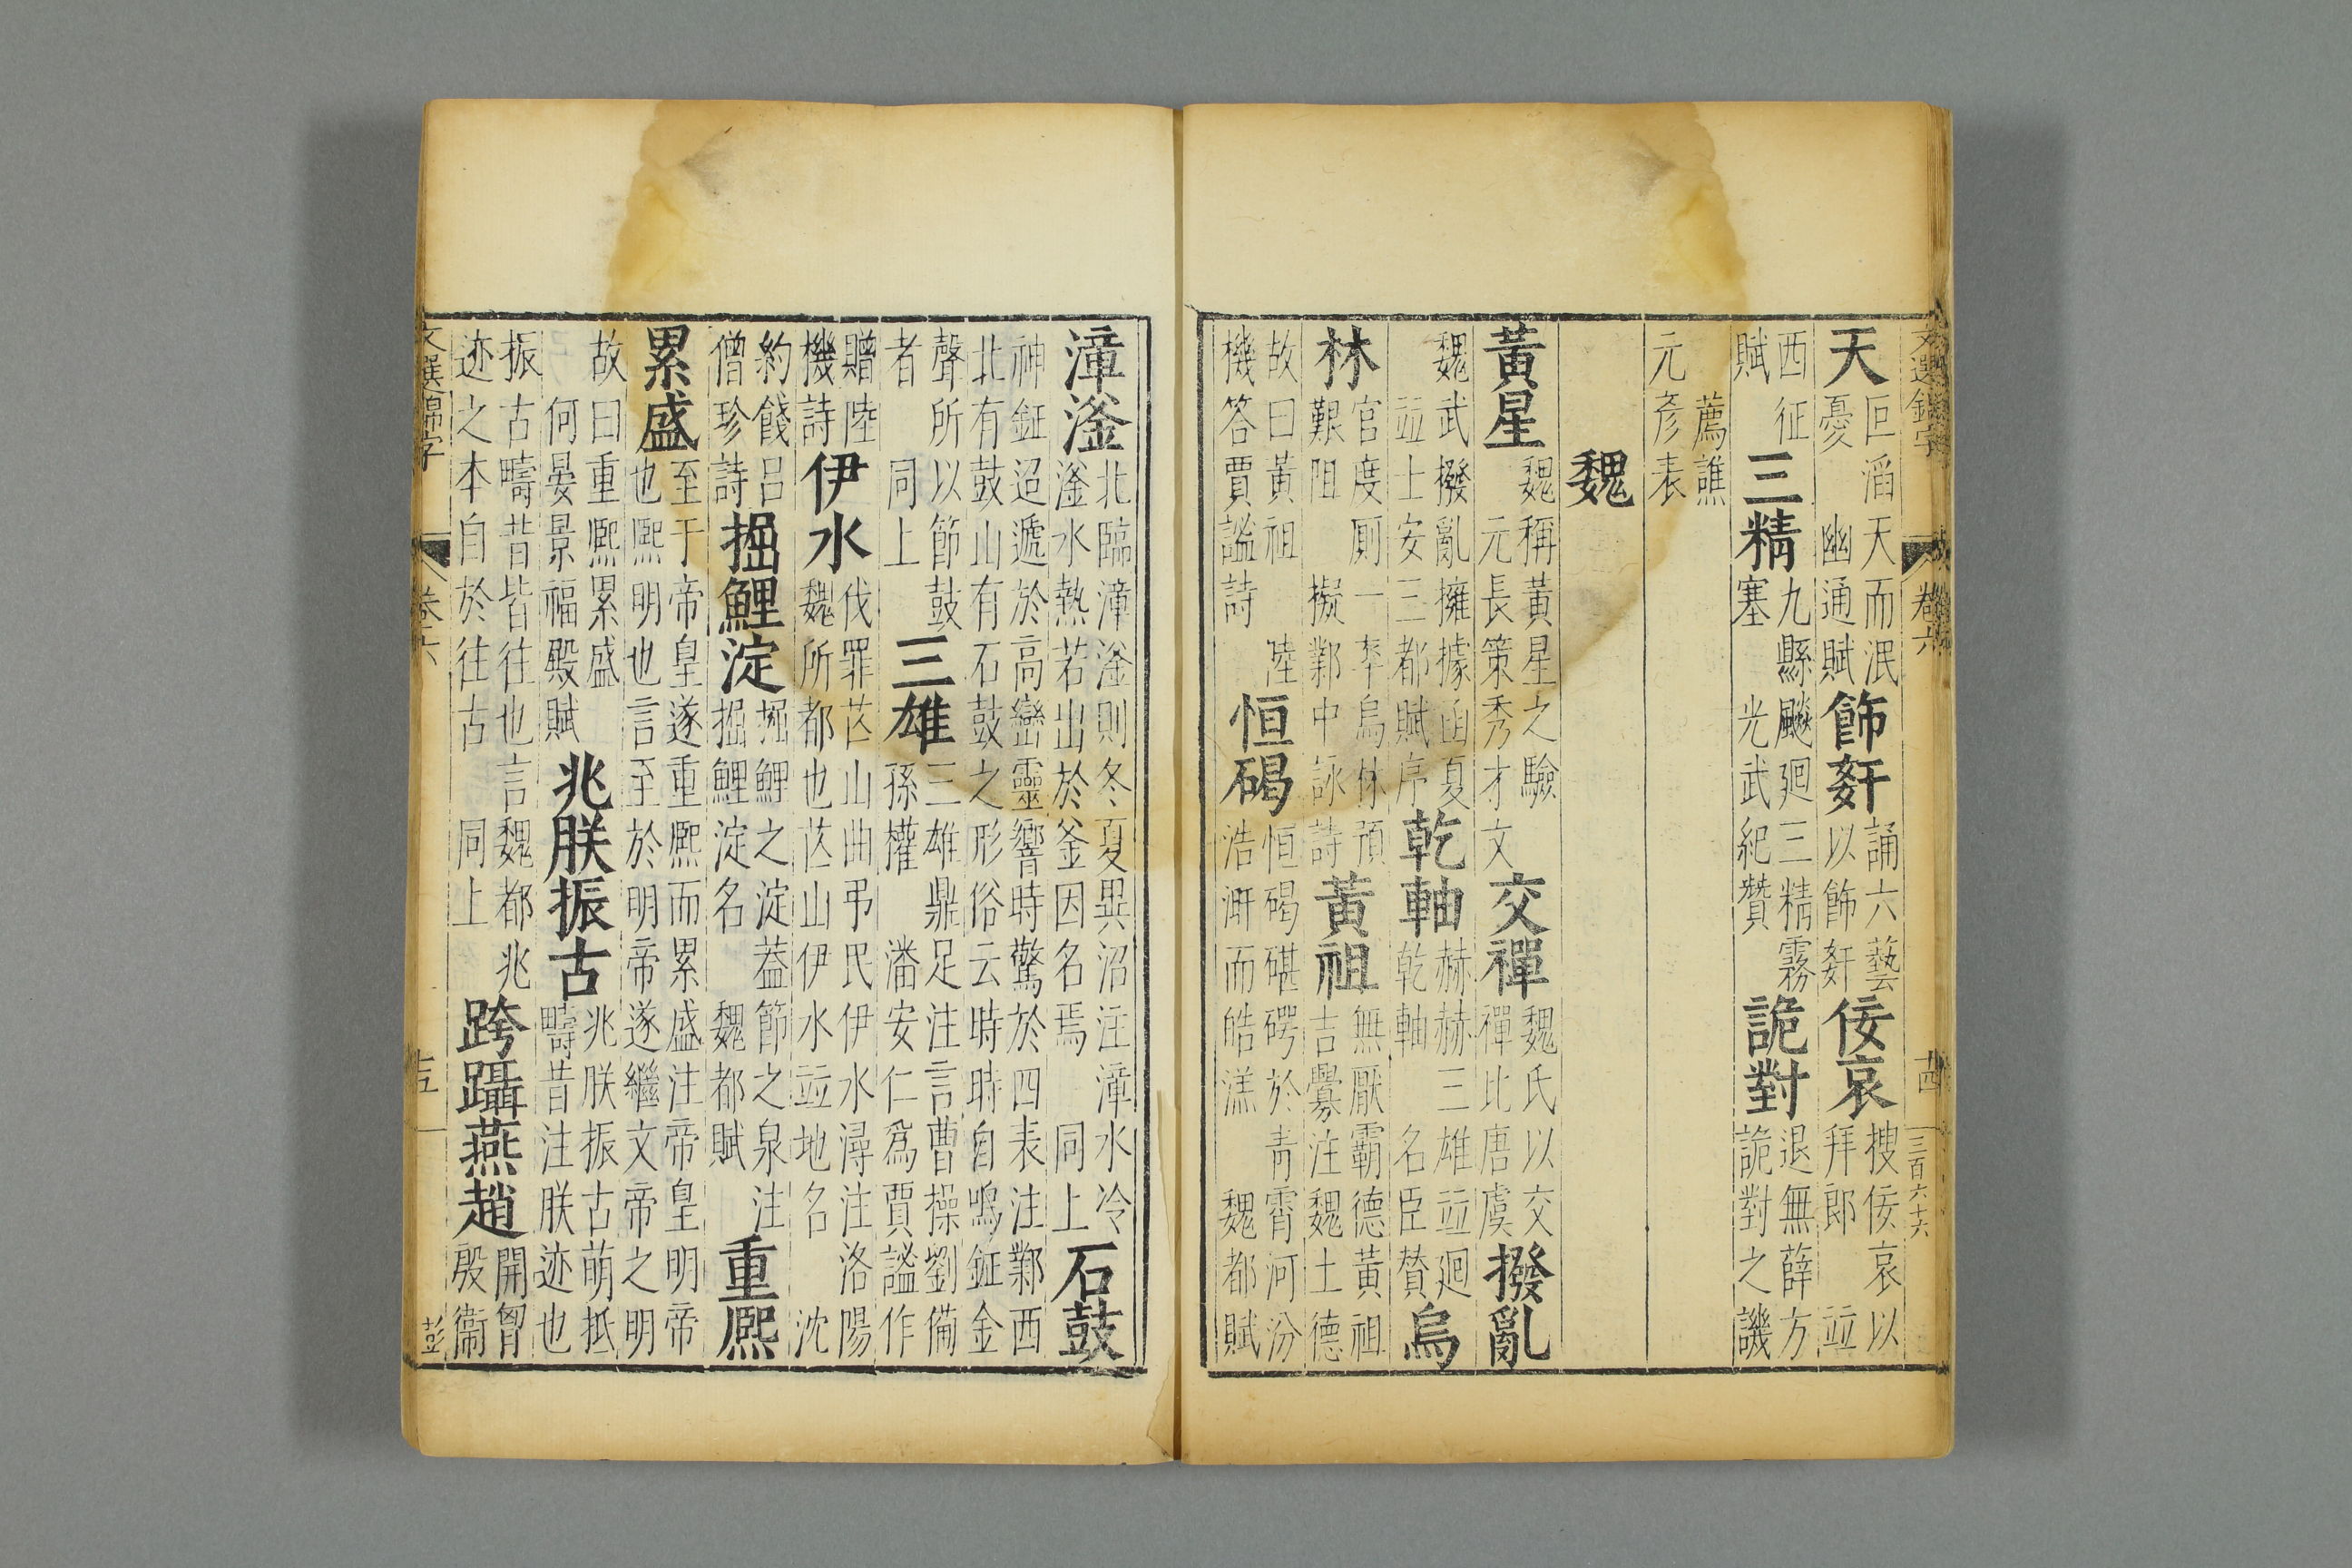 文選錦字 卷六 十四 三百六十六
天叵滔天而泯憂 幽通賦飾姧誦六藝以飾姧佞哀搜佞哀以拜郎 並
西征賦三精九縣飈廻三精霧塞 光武紀贊詭對退無薛方詭對之譏
薦譙元彥表
魏
黃星魏稱黃星之驗 元長策秀才文交禪魏氏以交禪比唐虞撥亂
魏武撥亂擁據函夏 並士安三都賦序乾軸赫赫三雄並廻乾軸 名臣贊烏
林官度厠一卒烏林預艱阻 擬鄴中詠詩黃祖無厭霸德黃祖吉釁注魏土德
故曰黃祖 陸機答賈謐詩恒碣恒碣碪硪於青霄河汾浩涆而皓溔 魏都賦
漳滏北臨漳滏則冬夏異沼注漳水冷滏水熱若出於釜因名焉 同上石鼓
神鉦迢遞於高巒靈響時驚於四表注鄴西北有鼓山有石鼓之形俗云時時自鳴鉦金
聲所以節鼓者 同上三雄三雄鼎足注言曹操劉備孫權 潘安仁爲賈謐作
贈陸機詩伊水伐罪芒山曲弔民伊水潯注洛陽魏所都也芒山伊水並地名 沈
約餞呂僧珍詩掘鯉淀掘鯉之淀葢節之泉注掘鯉淀名 魏都賦重熈
累盛至于帝皇遂重熈而累盛注帝皇明帝也熈明也言至於明帝遂繼文帝之明
故曰重熈累盛 何晏景福殿賦兆朕振古兆朕振古萌抵疇昔注朕迹也
振古疇昔皆往也言魏都兆迹之本自於往古 同上跨躡燕趙開胷殷衞
文選錦字 卷六 十五 彭